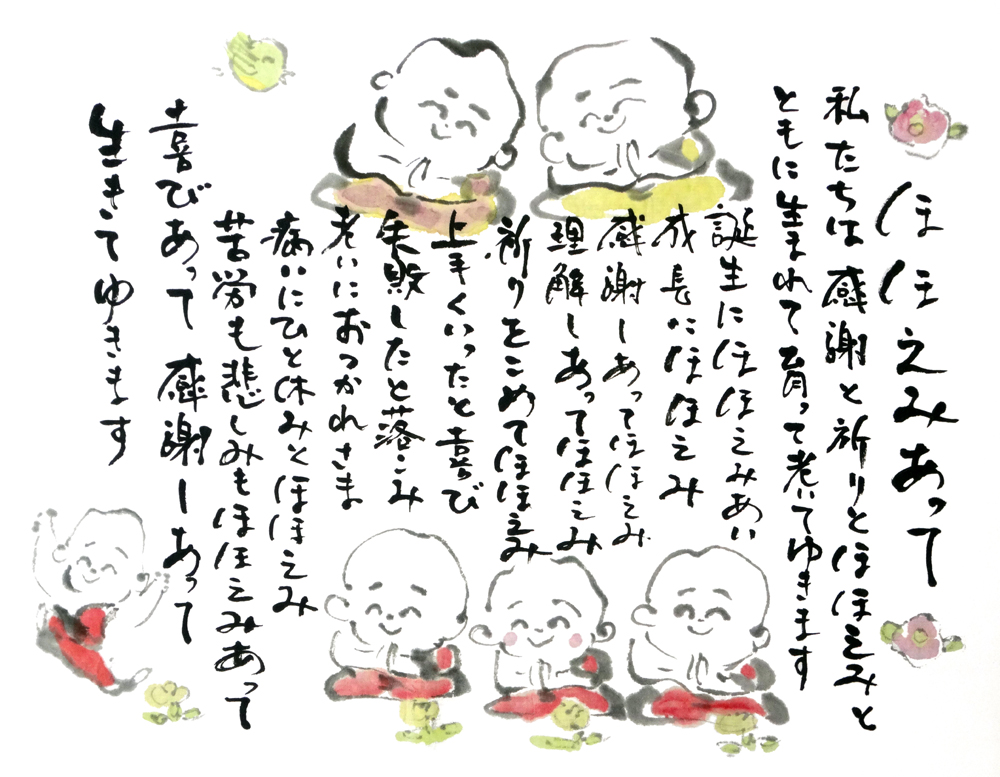 ほほえみあって
私たちは感謝と祈りとほほえみと
ともに生まれて育って老いてゆきます
誕生にほほえみあい
成長にほほえみ
感謝しあってほほえみ
理解しあってほほえみ
祈りをこめてほほえみ
上手くいったと喜び
失敗したと落こみ
老いにおつかれさま
病いにひと休みとほほえみ
苦労も悲しみもほほえみあって
喜びあって感謝しあって
生きてゆきます